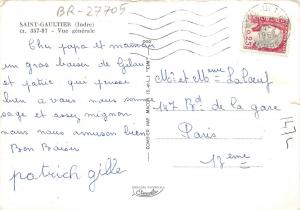 BR-27705
SAINT-GAULTIER (Indre)
ct. 357-87 - Vue générale
Cher papa et maman
un gros baiser de Gilau
et patric qui pensse
bien a vous nous somme
sage et assez mignon
nous nous amuson bien
Bon Baiser
patrich gille
Mr et Mme Laloeuf
147 Bd de la gare
Paris
13ème